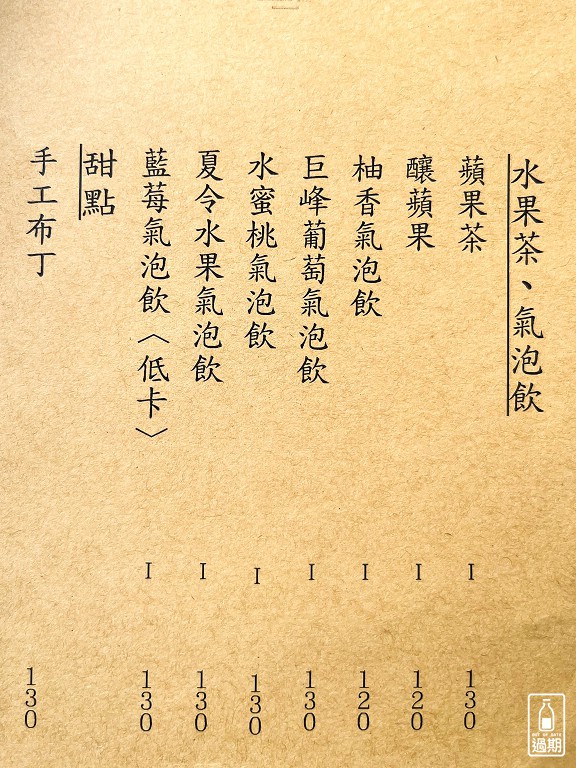 水果茶、氣泡飲
蘋果茶 I 130
釀蘋果 I 120
柚香氣泡飲 I 120
巨峰葡萄氣泡飲 I 130
水蜜桃氣泡飲 I 130
夏令水果氣泡飲 I 130
藍莓氣泡飲〈低卡〉 I 130
甜點
手工布丁 130
OUT OF DATE
過期